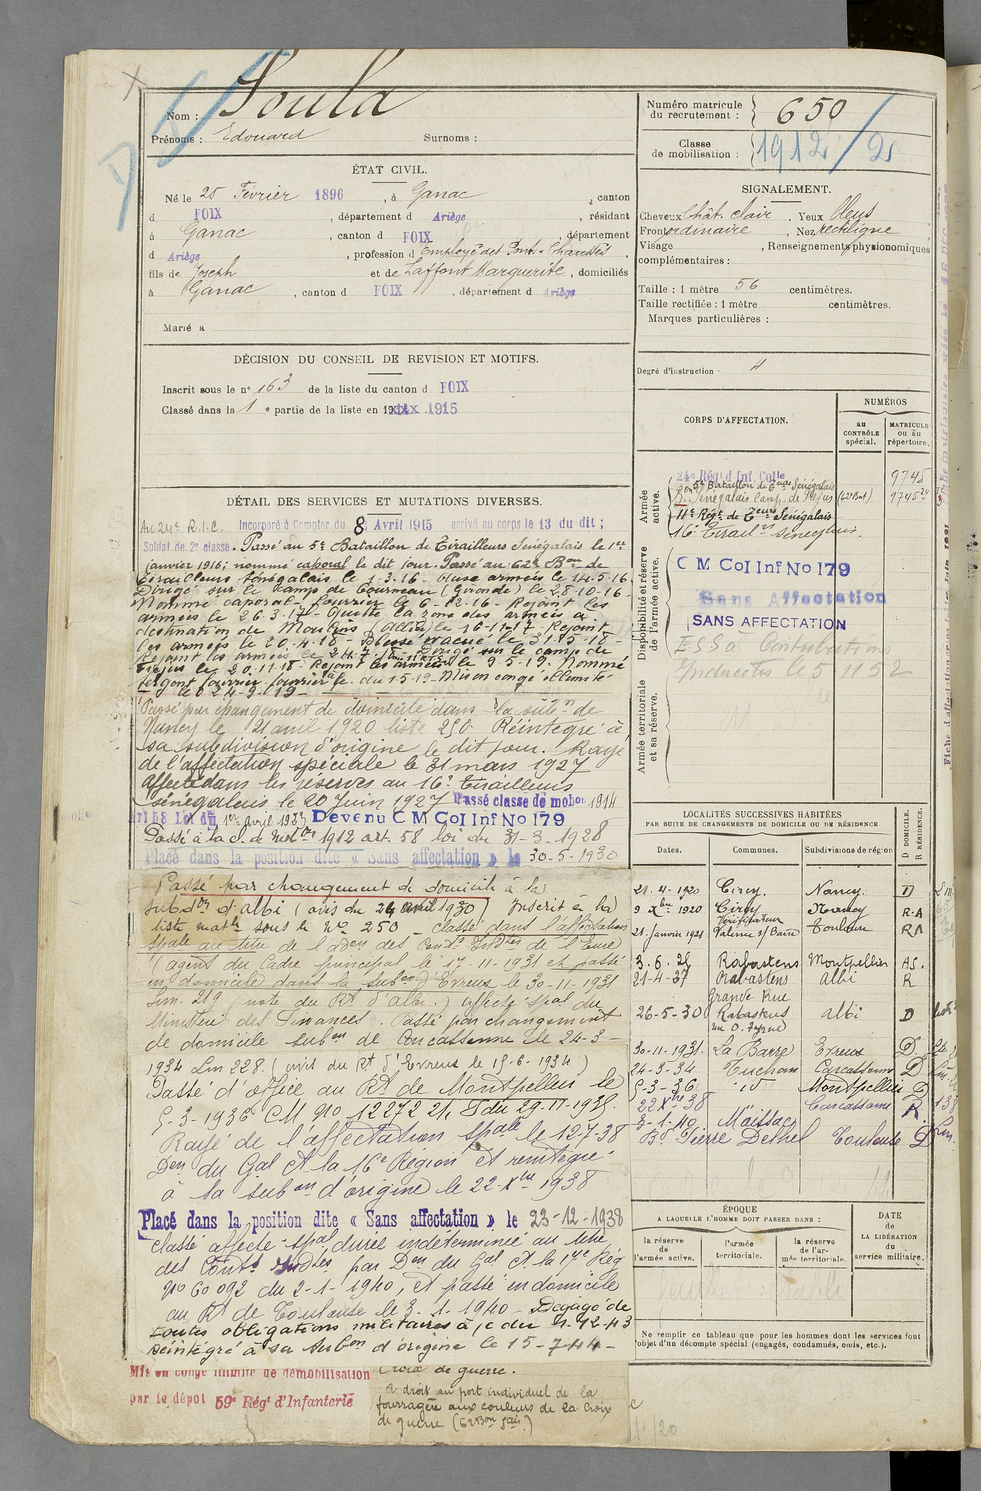 Nom : Soula
Prénoms : Edouard Surnoms :
ÉTAT CIVIL.
Né le 25 Février 1896, à Ganac, canton
d FOIX, département d Ariège, résidant
à Ganac, canton d FOIX, département
d Ariège, profession d Employé des Ponts & Chaussées,
fils de Joseph et de Laffont Marguerite, domiciliés
à Ganac, canton d FOIX, département d Ariège
Marié à
DÉCISION DU CONSEIL DE REVISION ET MOTIFS.
Inscrit sous le n° 163 de la liste du canton d FOIX
Classé dans la 1 e partie de la liste en 1915
DÉTAIL DES SERVICES ET MUTATIONS DIVERSES.
Au 24e R.I.C. Incorporé à Compter du 8 Avril 1915 arrivé au corps le 13 du dit ;
Soldat de 2e classe. Passé au 5e Bataillon de Tirailleurs Sénégalais le 1er
janvier 1916; nommé caporal le dit jour. Passé au 62e Bon de
Tirailleurs Sénégalais le 1.3.16 - aux armées le 14.5.16
Dirigé sur le Camp de Courneau (Gironde) le 28.10.16 -
Nommé caporal fourrier le 6-12-16 - Rejoint les
armées le 26.3.17 - Quitte la zone des armées à
destination de Moulins (Allier) le 16-11-17 - Rejoint
les armées le 26-4-18 - Blessé évacué le 31-5-18 -
Rejoint les armées le 24.7.18 - Dirigé sur le camp de
Fréjus le 20.11.18 - Rejoint les armées le 9.5.19. Nommé
sergent fourrier du 1.5.19 Mis en congé illimité
le 24-9-19 -
Passé par changement de domicile dans la subon de
Nancy le 21 avril 1920 liste 250 Réintégré à
sa subdivision d'origine le dit jour. Rayé
de l'affectation spéciale le 31 mars 1927
Affecté dans les réserves au 16e Tirailleurs
Sénégalais le 20 Juin 1927 Passé classe de mobon 1914
Art 58 Loi du 1er avril 1923 Devenu C M Col Inf No 179
Passé à la cl. de mobon 1912 art. 58 loi du 31-3-1928
Placé dans la position dite « Sans affectation » le 30-5-1930
Passé par changement de domicile à la
subdon d'Albi (avis du 24 avril 1930) Inscrit à la
liste matle sous le No 250 - classé dans l'affectation
spale au titre de l'Don des Contons Indtes de l'Eure
(agent du Cadre principal le 17-11-1931 et passé
en domicile dans la subon d'Evreux le 30-11-1931
Lm. 219 (note du Rt d'Albi.) affecté spal du
Ministère des Finances. Passé par changement
de domicile subon de Carcassonne le 24-3-
1934 Lm 228 (avis du Rt d'Evreux le 15-6-1934)
Passé d'office au Rt de Montpellier le
Rayé de l'affectation spale le 12-7-38
Don du Gal Ct la 16e Région et réintégré
à la subon d'origine le 22-Xbre 1938
Placé dans la position dite « Sans affectation » le 23-12-1938
Classé affecté spal durée indéterminée au titre
des Contons Indtes par Don du Gal Ct la 17e Rég
No 60 092 du 2-1-1940, et passé en domicile
au Rt de Toulouse le 3-1-1940 - Dégagé de
toutes obligations militaires à/c du 1-12-43
Réintégré à sa subon d'origine le 15-7-44 -
Mis en congé illimité de démobilisation
par le dépôt 59e Régt d'Infanterie
Croix de guerre.
A droit au port individuel de la
fourragère aux couleurs de la Croix
de guerre (62 Bon Sais)
Numéro matricule
du recrutement : 650
Classe
de mobilisation : 1912/2
SIGNALEMENT.
Cheveux Chât. clair, Yeux bleus
Front ordinaire, Nez rectiligne
Visage , Renseignements physionomiques
complémentaires :
Taille : 1 mètre 56 centimètres.
Taille rectifiée : 1 mètre centimètres.
Marques particulières :
Degré d'instruction
CORPS D'AFFECTATION.
NUMÉROS
au
CONTRÔLE
spécial.
MATRICULE
ou au
répertoire.
Armée
active.
24e Régt d'Inf. Colle 9745
5e Bataillon de Tirs Sénégalais
Sénégalais Camp de Fréjus (62e Bat) 9745
11e Régt de Teurs Sénégalais
16e Tiraillrs Sénégalais.
Disponibilité et réserve
de l'armée active.
C M Col Inf No 179
Sans Affectation
SANS AFFECTATION
E.S. à Contributions
Indirectes le 5 11 52
Armée territoriale
et sa réserve.
LOCALITÉS SUCCESSIVES HABITÉES
PAR SUITE DE CHANGEMENTS DE DOMICILE OU DE RÉSIDENCE
Dates. Communes. Subdivisions de région D DOMICILE. R RÉSIDENCE.
21.4.1920 Cirey Nancy D
9 Xbre 1920 Cirey Nancy R.A
21 janvier 1921 Valence s/ Baïse Toulouse RA
3.6.25 Rabastens Montpellier AS.
21-4-27 Rabastens Albi R
Grande Rue
26-5-30 Rabastens Albi D
30-11-1931. La Barre Evreux D
24-3-34 Tuchan Carcassonne D
5-3-36 id Montpellier D
22 Xbre 38 Carcassonne R
3-1-40 Moissac
Bd Pierre Delbrel Toulouse D
ÉPOQUE
A LAQUELLE L'HOMME DOIT PASSER DANS :
DATE
DE LA
LIBÉRATION
du
service militaire.
la réserve
de
l'armée active.
l'armée
territoriale.
la réserve
de l'ar-
mée territoriale.
Ne remplir ce tableau que pour les hommes dont les services font
l'objet d'un décompte spécial (engagés, condamnés, omis, etc.).